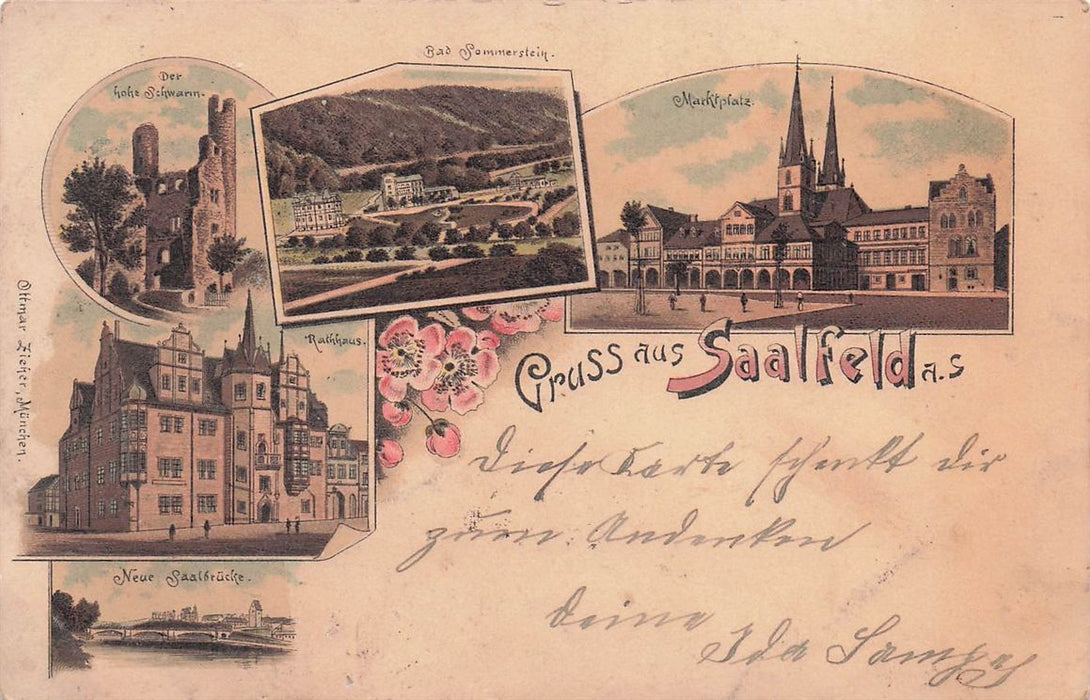 Bad Sommerstein.
Der
hohe Schwarm.
Marktplatz.
Rathhaus.
Ottmar Zieher, München.
Gruss aus Saalfeld a.S
Neue Saalbrücke.
Diese Karte schenkt dir
zum Andenken
Deine
Ida